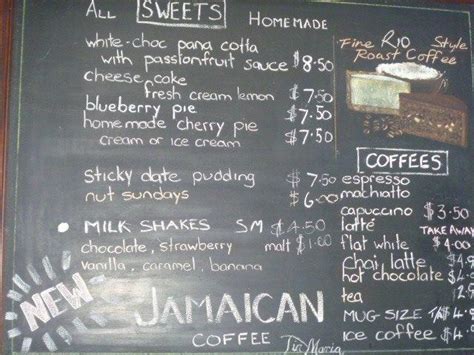 ALL SWEETS HOMEMADE
white-choc pana cotta
with passionfruit sauce $8.50
cheese cake
fresh cream lemon $7.50
blueberry pie $7.50
homemade cherry pie
cream or ice cream $7.50
sticky date pudding $7.50
nut sundays $6.00
• MILK SHAKES SM $4.50
chocolate, strawberry malt $1.00
vanilla, caramel, banana
NEW
JAMAICAN
COFFEE Tia Maria
Fine RIO Style
Roast Coffee
COFFEES
espresso
machiatto
capuccino $3.50
latté TAKE AWAY
flat white $4.00
chai, latte $4
hot chocolate $4
tea $2
MUG SIZE TA
ice coffee $4